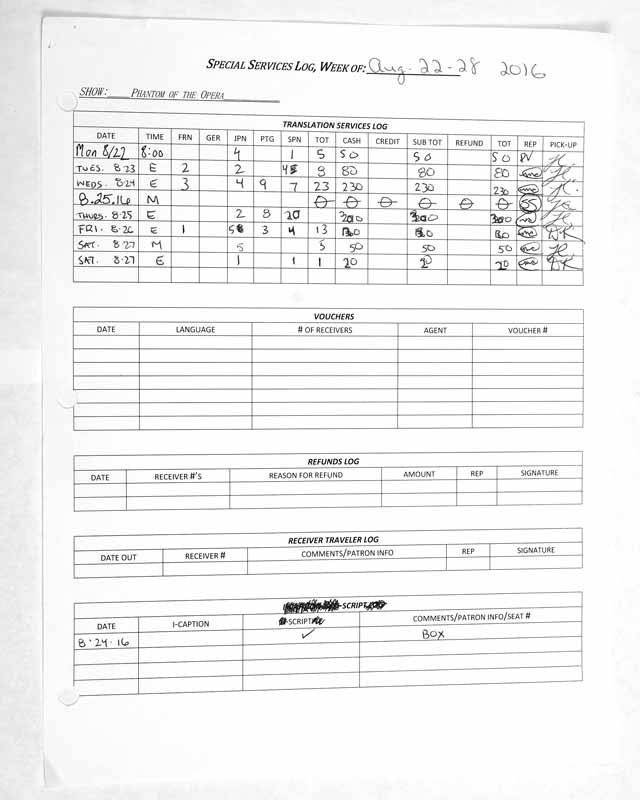 SPECIAL SERVICES LOG, WEEK OF: Aug. 22-28 2016
SHOW: PHANTOM OF THE OPERA
TRANSLATION SERVICES LOG
DATE TIME FRN GER JPN PTG SPN TOT CASH CREDIT SUB TOT REFUND TOT REP PICK-UP
Mon 8/22 8:00 4 1 5 50 50 50
TUES. 8.23 E 2 2 8 80 80 80
WEDS. 8.24 E 3 4 9 7 23 230 230 230
8.25.16 M 0 0 0 0 0 0 SS
THURS. 8.25 E 2 8 20
FRI. 8.26 E 1 3 4 13
SAT. 8.27 M 5 5 50 50 50
SAT. 8.27 E 1 1 1 20 20 20
VOUCHERS
DATE LANGUAGE # OF RECEIVERS AGENT VOUCHER #
REFUNDS LOG
DATE RECEIVER #'S REASON FOR REFUND AMOUNT REP SIGNATURE
RECEIVER TRAVELER LOG
DATE OUT RECEIVER # COMMENTS/PATRON INFO REP SIGNATURE
-SCRIPT
DATE I-CAPTION -SCRIPT COMMENTS/PATRON INFO/SEAT #
8.24.16 ✓ BOX